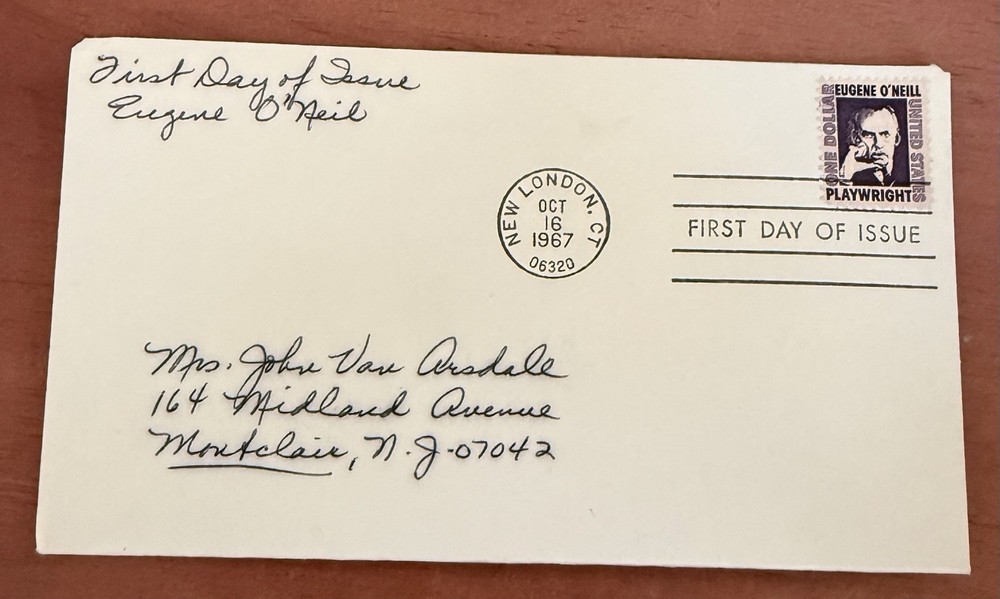 First Day of Issue
Eugene O'Neil
EUGENE O'NEILL
ONE DOLLAR
UNITED STATES
PLAYWRIGHT
NEW LONDON, CT
OCT
16
1967
06320
FIRST DAY OF ISSUE
Mrs. John Van Arsdale
164 Midland Avenue
Montclair, N.J. 07042